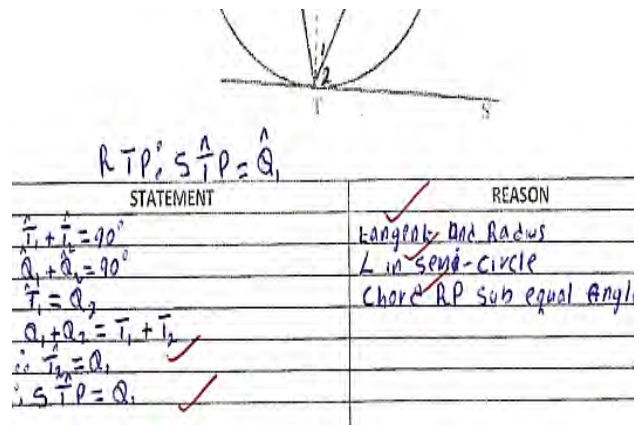 1
2
T
S
RTP: ST̂P = Q̂₁
STATEMENT REASON
T̂₁ + T̂₂ = 90° tangent And Radius
Q̂₁ + Q̂₂ = 90° L in semi-circle
T̂₁ = Q̂₂ Chord RP Sub equal Angl
Q₁ + Q₂ = T₁ + T₂
∴ T̂₂ = Q₁
∴ ST̂P = Q₁